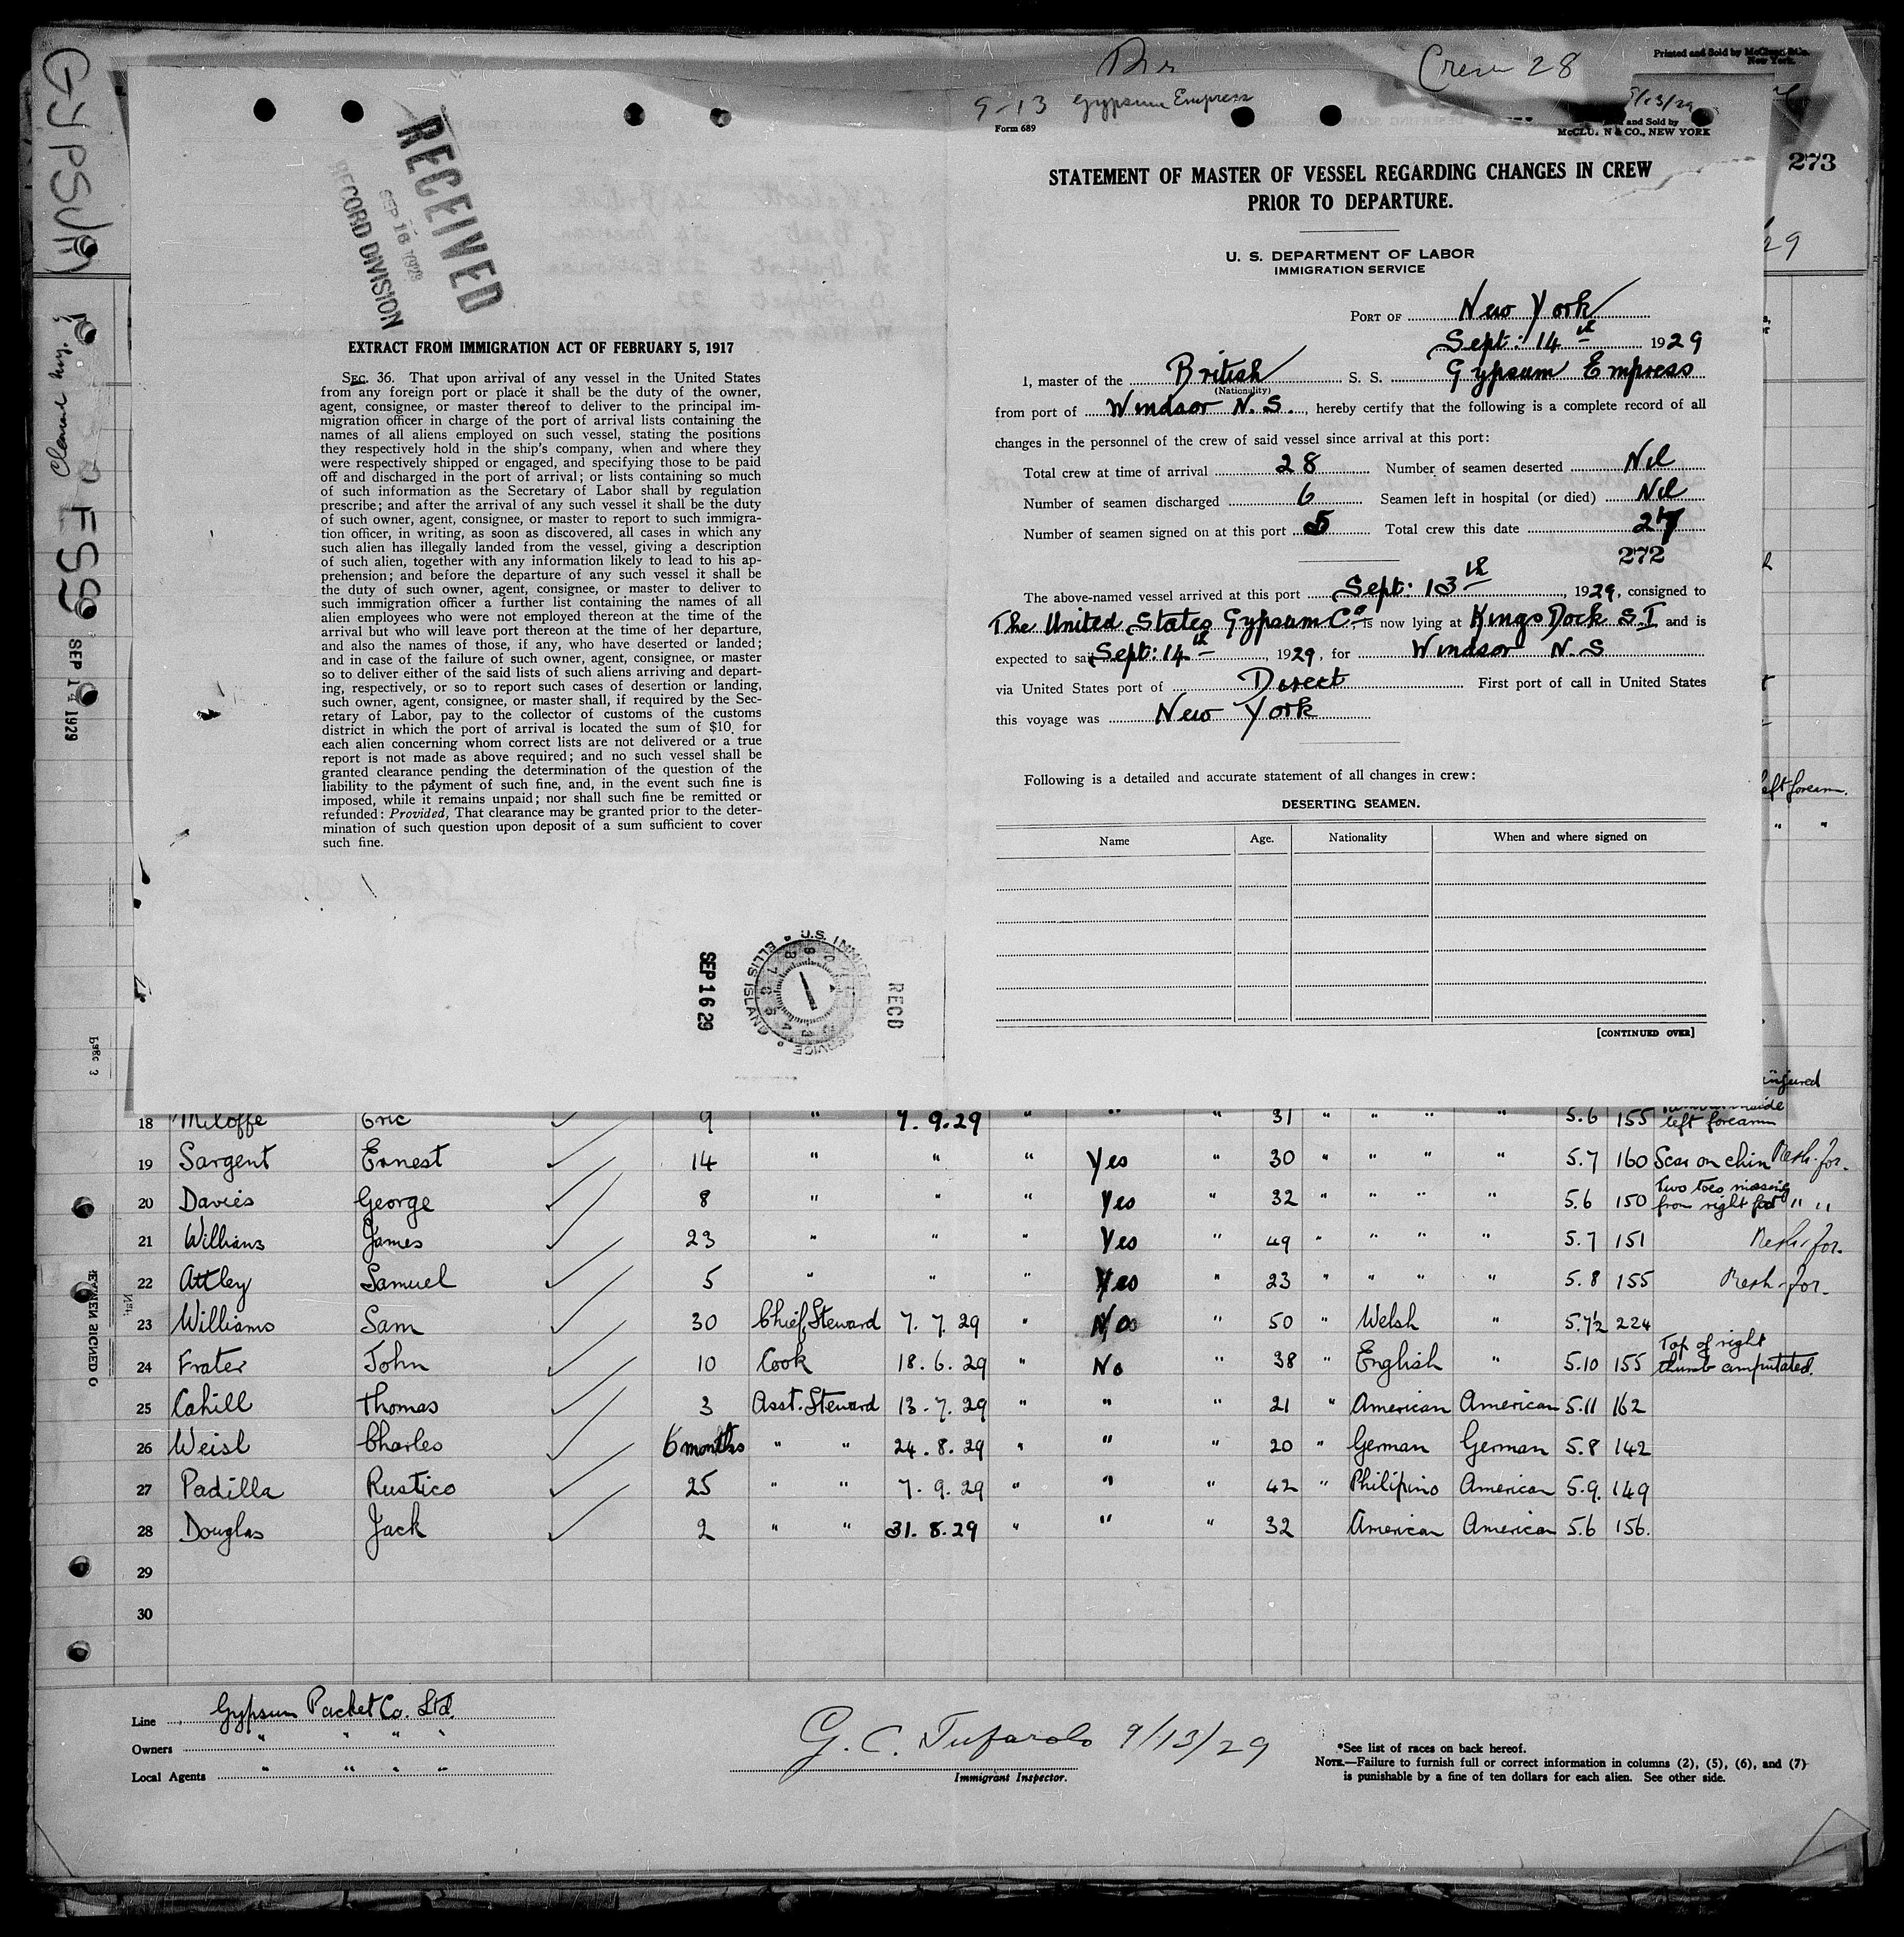 Br
Crew 28
Printed and Sold by McClunn & Co.
New York.
9-13 Gypsum Empress
9/13/29
Form 689
and Sold by
McCLU. N & CO., NEW YORK
273
GYPSUM
RECEIVED
SEP 16 1929
RECORD DIVISION
EXTRACT FROM IMMIGRATION ACT OF FEBRUARY 5, 1917
SEC. 36. That upon arrival of any vessel in the United States
from any foreign port or place it shall be the duty of the owner,
agent, consignee, or master thereof to deliver to the principal im-
migration officer in charge of the port of arrival lists containing the
names of all aliens employed on such vessel, stating the positions
they respectively hold in the ship's company, when and where they
were respectively shipped or engaged, and specifying those to be paid
off and discharged in the port of arrival; or lists containing so much
of such information as the Secretary of Labor shall by regulation
prescribe; and after the arrival of any such vessel it shall be the duty
of such owner, agent, consignee, or master to report to such immigra-
tion officer, in writing, as soon as discovered, all cases in which any
such alien has illegally landed from the vessel, giving a description
of such alien, together with any information likely to lead to his ap-
prehension; and before the departure of any such vessel it shall be
the duty of such owner, agent, consignee, or master to deliver to
such immigration officer a further list containing the names of all
alien employees who were not employed thereon at the time of the
arrival but who will leave port thereon at the time of her departure,
and also the names of those, if any, who have deserted or landed;
and in case of the failure of such owner, agent, consignee, or master
so to deliver either of the said lists of such aliens arriving and depart-
ing, respectively, or so to report such cases of desertion or landing,
such owner, agent, consignee, or master shall, if required by the Sec-
retary of Labor, pay to the collector of customs of the customs
district in which the port of arrival is located the sum of $10. for
each alien concerning whom correct lists are not delivered or a true
report is not made as above required; and no such vessel shall be
granted clearance pending the determination of the question of the
liability to the payment of such fine, and, in the event such fine is
imposed, while it remains unpaid; nor shall such fine be remitted or
refunded: Provided, That clearance may be granted prior to the deter-
mination of such question upon deposit of a sum sufficient to cover
such fine.
SEP 14 1929
SEP 16 29
U.S. IMMIG SERVICE ELLIS ISLAND
RECD
STATEMENT OF MASTER OF VESSEL REGARDING CHANGES IN CREW
PRIOR TO DEPARTURE.
U. S. DEPARTMENT OF LABOR
IMMIGRATION SERVICE
PORT OF New York
Sept: 14th 1929
I, master of the British S. S. Gypsum Empress
(Nationality)
from port of Windsor N.S., hereby certify that the following is a complete record of all
changes in the personnel of the crew of said vessel since arrival at this port:
Total crew at time of arrival 28 Number of seamen deserted Nil
Number of seamen discharged 6 Seamen left in hospital (or died) Nil
Number of seamen signed on at this port 5 Total crew this date 27
272
The above-named vessel arrived at this port Sept: 13th, 1929, consigned to
The United States Gypsum Co. is now lying at Kings Dock S.I and is
expected to sail Sept: 14th, 1929, for Windsor N.S
via United States port of Direct First port of call in United States
this voyage was New York
Following is a detailed and accurate statement of all changes in crew:
DESERTING SEAMEN.
Name Age. Nationality When and where signed on
[CONTINUED OVER]
left forearm.
" "
injured
18 Miloffe Eric 9 " 7.9.29 " " " 31 " " " " 5.6 155 left forearm
19 Sargent Ernest 14 " " " Yes " 30 " " " " 5.7 160 Scar on chin Resh. for.
20 Davies George 8 " " " Yes " 32 " " " " 5.6 150 Two toes missing from right foot " "
21 Willians James 23 " " " Yes " 49 " " " " 5.7 151 Resh. for.
22 Attley Samuel 5 " " " Yes " 23 " " " " 5.8 155 Resh. for.
23 Williams Sam 30 Chief Steward 7.7.29 " No " 50 " Welsh " 5.7½ 224
24 Frater John 10 Cook 18.6.29 " No " 38 " English " 5.10 155 Top of right thumb amputated.
25 Cahill Thomas 3 Asst. Steward 13.7.29 " " " 21 " American American 5.11 162
26 Weisl Charles 6 months " " 24.8.29 " " " 20 " German German 5.8 142
27 Padilla Rustico 25 " " 7.9.29 " " " 42 " Philipino American 5.9. 149
28 Douglas Jack 2 " " 31.8.29 " " " 32 American American 5.6 156.
29
30
Line Gypsum Packet Co. Ltd.
Owners " " " "
Local Agents " " " "
G. C. Tufarolo 9/13/29
Immigrant Inspector.
*See list of races on back hereof.
NOTE.—Failure to furnish full or correct information in columns (2), (5), (6), and (7)
is punishable by a fine of ten dollars for each alien. See other side.